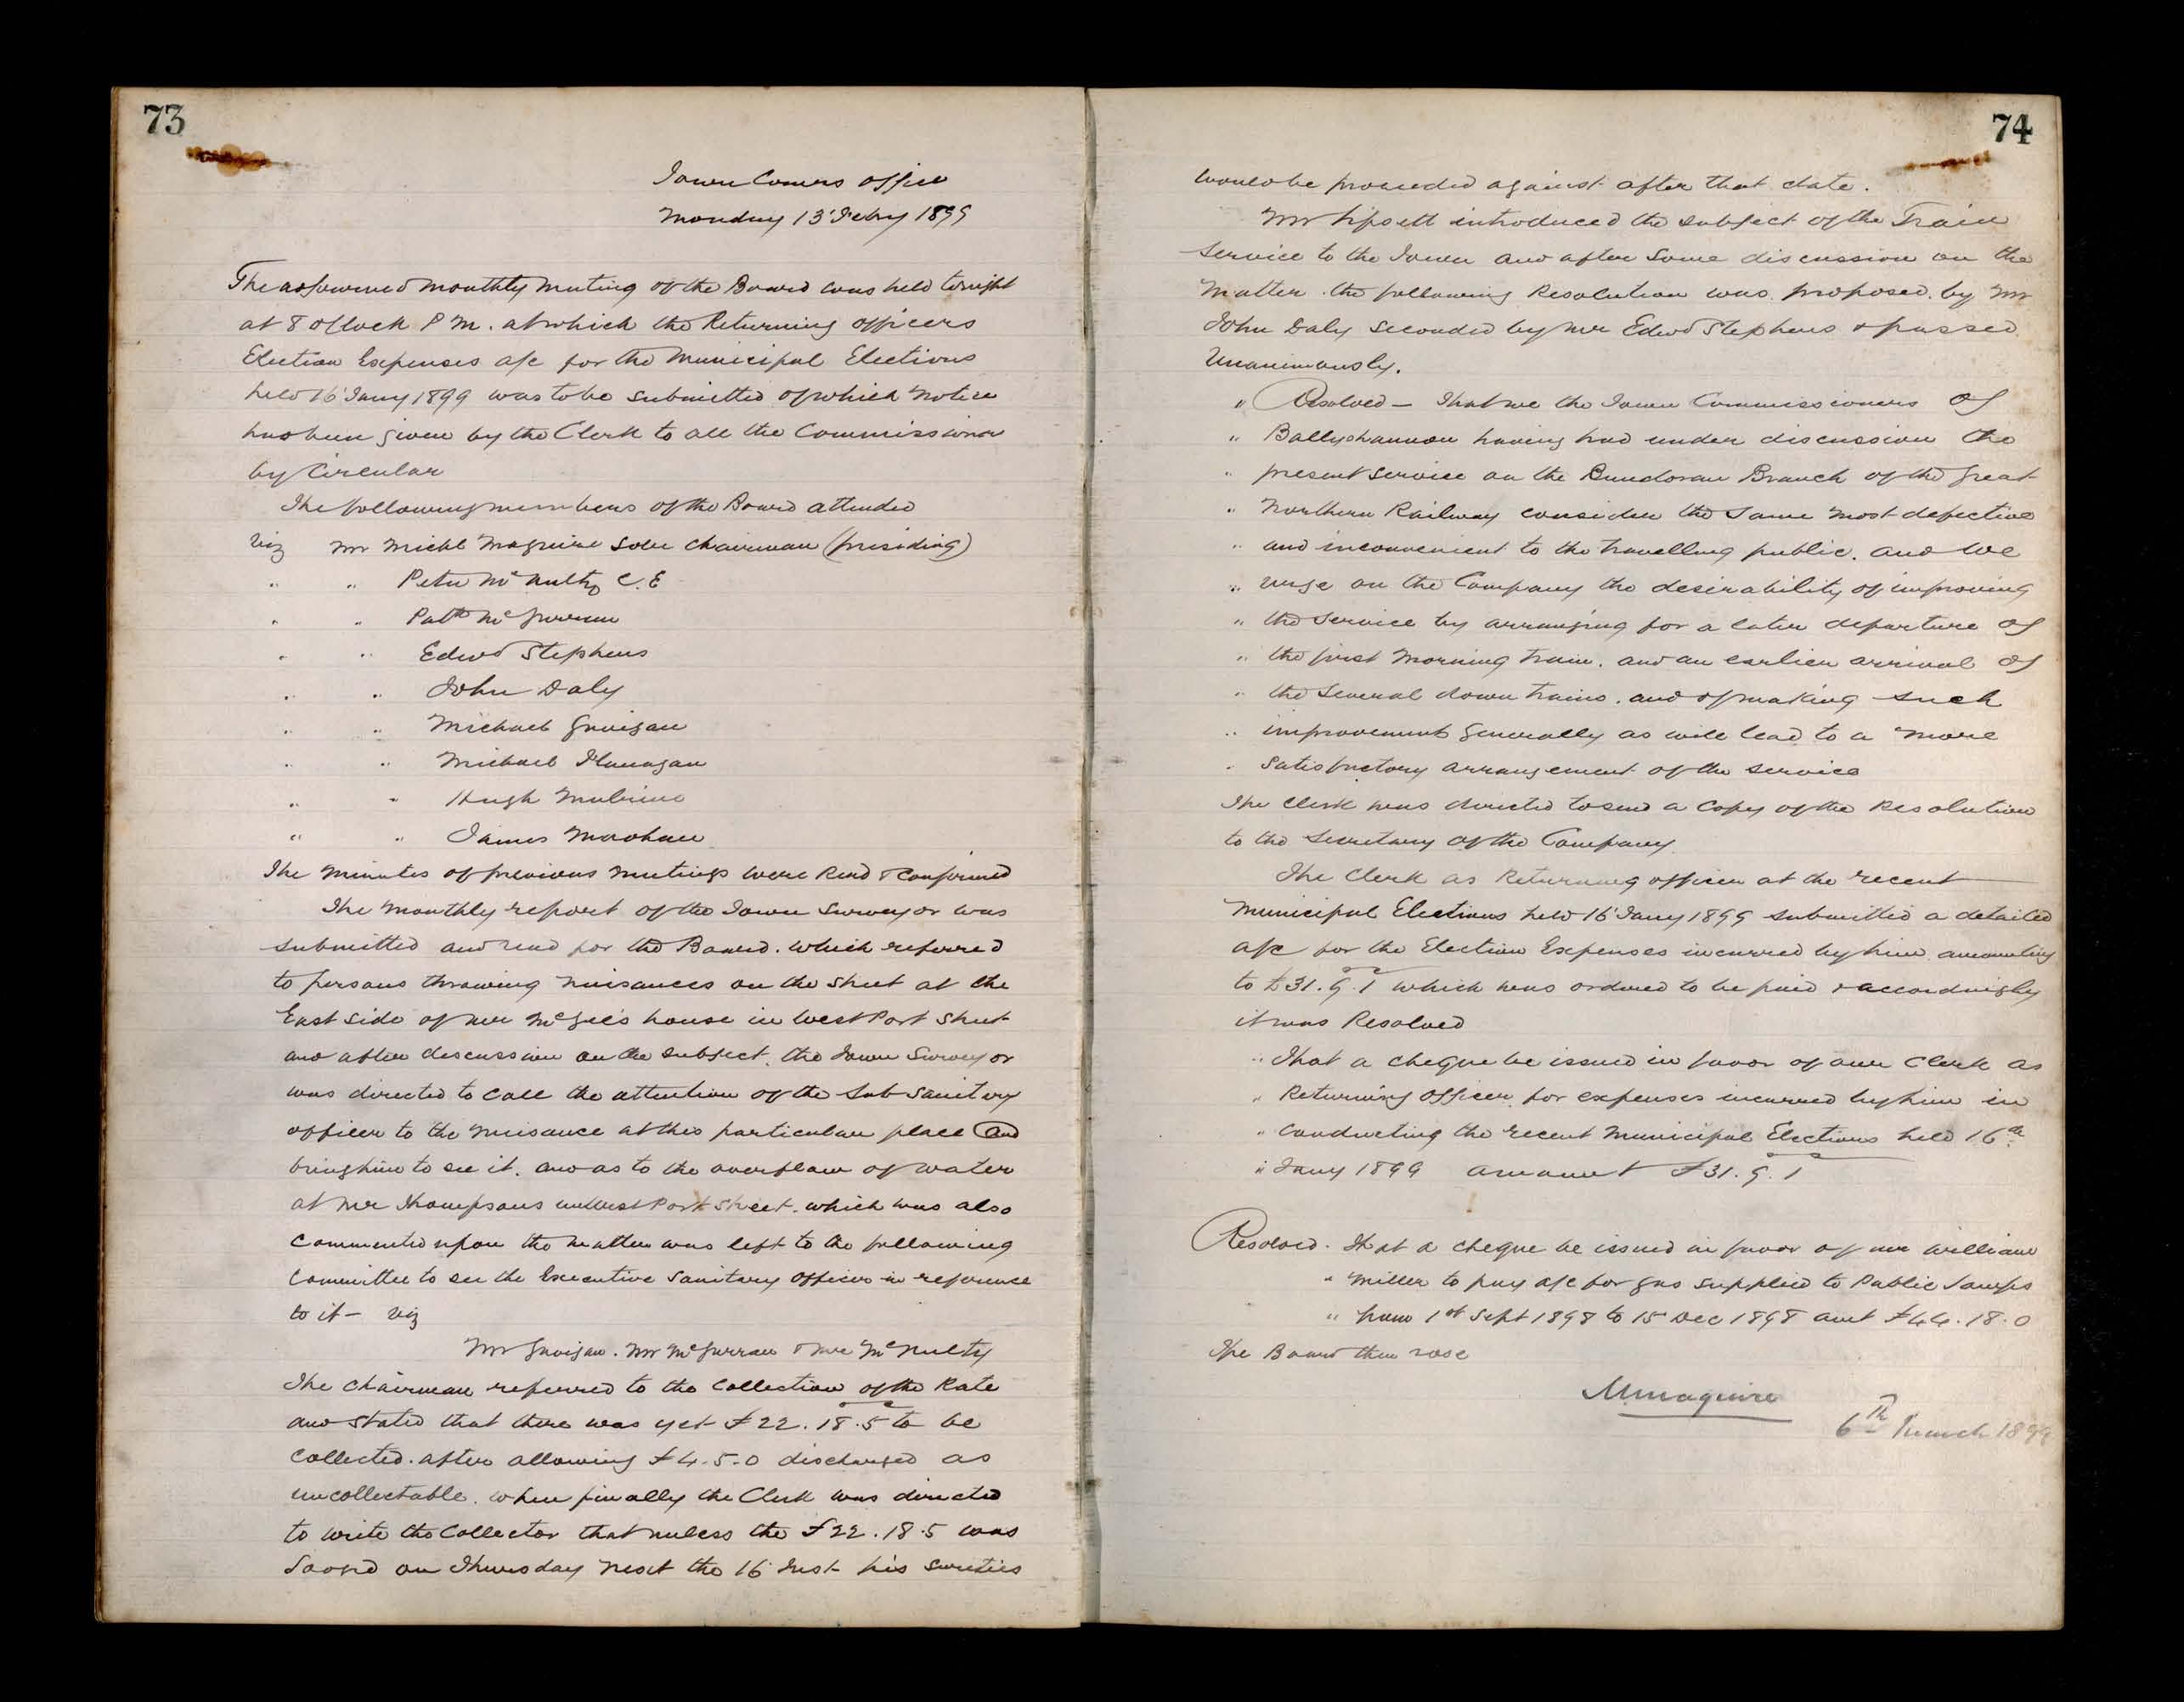 73
Town Comrs Office
Monday 13' Feby 1899
The adjourned monthly meeting of the Board was held tonight
at 8 oClock P M. at which the Returning officers
Election Expenses a/c for the Municipal Elections
held 16' Jany 1899 was to be submitted of which notice
has been given by the Clerk to all the Commissioners
by Circular
The following members of the Board attended
Viz Mr Michl Maguire Solr Chairman (presiding)
" " Peter McNulty C.E
" " Patk McGurran
" " Edwd Stephens
" " John Daly
" " Michael Gavigan
" " Michael Flanagan
" " Hugh
" " James Moohan
The minutes of previous meetings were Read & Confirmed
The monthly report of the Town Surveyor was
submitted and read for the Board. which referred
to persons throwing nuisances on the street at the
East side of Mr McGee's house in West Port Street
and after discussion on the subject. the Town Surveyor
was directed to call the attention of the Sub Sanitary
officer to the nuisance at this particular place and
bring him to see it. and as to the overflow of water
at Mr Thompsons in West Port Street. which was also
commented upon the matter was left to the following
Committee to see the Executive Sanitary Officer in reference
to it – Viz
Mr Gavigan. Mr McGurran & Mr McNulty
The Chairman referred to the Collection of the Rate
and stated that there was yet £22.18.5 to be
collected. after allowing £4.5.0 discharged as
uncollectable. when finally the Clerk was directed
to write the Collector that unless the £22.18.5 was
Lodged on Thursday next the 16' Inst his sureties
74
would be proceeded against after that date.
Mr Lipsett introduced the subject of the Train
service to the Town and after some discussion on the
matter. the following Resolution was proposed. by Mr
John Daly seconded by Mr Edwd Stephens & passed
Unanimously.
" Resolved – That we the Town Commissioners of
" Ballyshannon having had under discussion the
" present service on the Bundoran Branch of the Great
" Northern Railway consider the same most defective
" and inconvenient to the travelling public. and we
" urge on the Company the desirability of improving
" the service by arranging for a later departure of
" the first morning train. and an earlier arrival of
" the several down trains. and of making such
" improvements generally as will lead to a more
" satisfactory arrangement of the service
The Clerk was directed to send a copy of the Resolution
to the Secretary of the Company
The Clerk as Returning officer at the recent
Municipal Elections held 16' Jany 1899 submitted a detailed
a/c for the Election Expenses incurred by him amounting
to £31.9.1 which was ordered to be paid & accordingly
it was Resolved
" That a cheque be issued in favor of our Clerk as
" Returning Officer for expenses incurred by him in
" conducting the recent Municipal Elections held 16th
" Jany 1899 amount £31.9.1
Resolved. That a cheque be issued in favor of Mr William
" Miller to pay a/c for gas supplied to Public Lamps
" from 1st Sept 1898 to 15 Dec 1898 amt £44.18.0
The Board then rose
MMaguire
6th March 1899